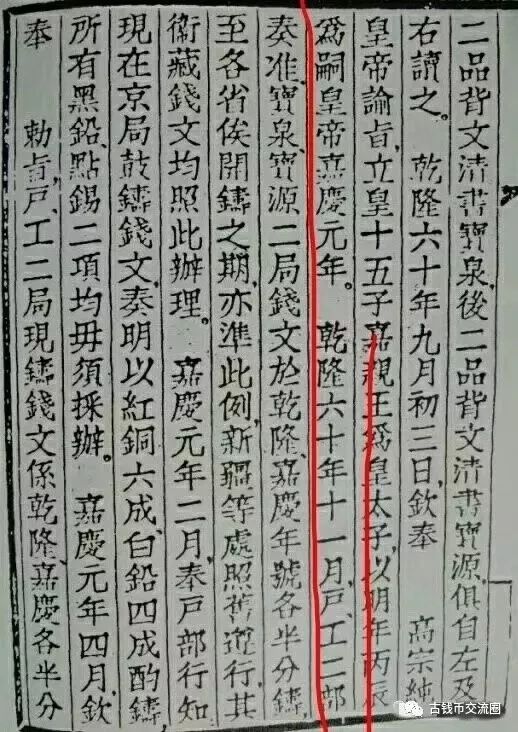 二品背文清書寶泉、後二品背文清書寶源、俱自左及
右讀之。　乾隆六十年九月初三日、欽奉　　高宗純
皇帝諭旨、立皇十五子嘉親王爲皇太子、以明年丙辰
爲嗣皇帝嘉慶元年。　乾隆六十年十一月、戶、工二部
奏准、寶泉、寶源二局錢文於乾隆、嘉慶年號各半分鑄、
至各省俟開鑄之期、亦準此例、新疆等處照舊遵行、其
衛藏錢文均照此辦理。　嘉慶元年二月、奉戶部行知
現在京局鼓鑄錢文、奏明以紅銅六成、白鉛四成酌鑄、
所有黑鉛、點錫二項均毋須採辦。　嘉慶元年四月、欽
奉　　勅旨、戶、工二局現鑄錢文係乾隆、嘉慶各半分
古钱币交流圈